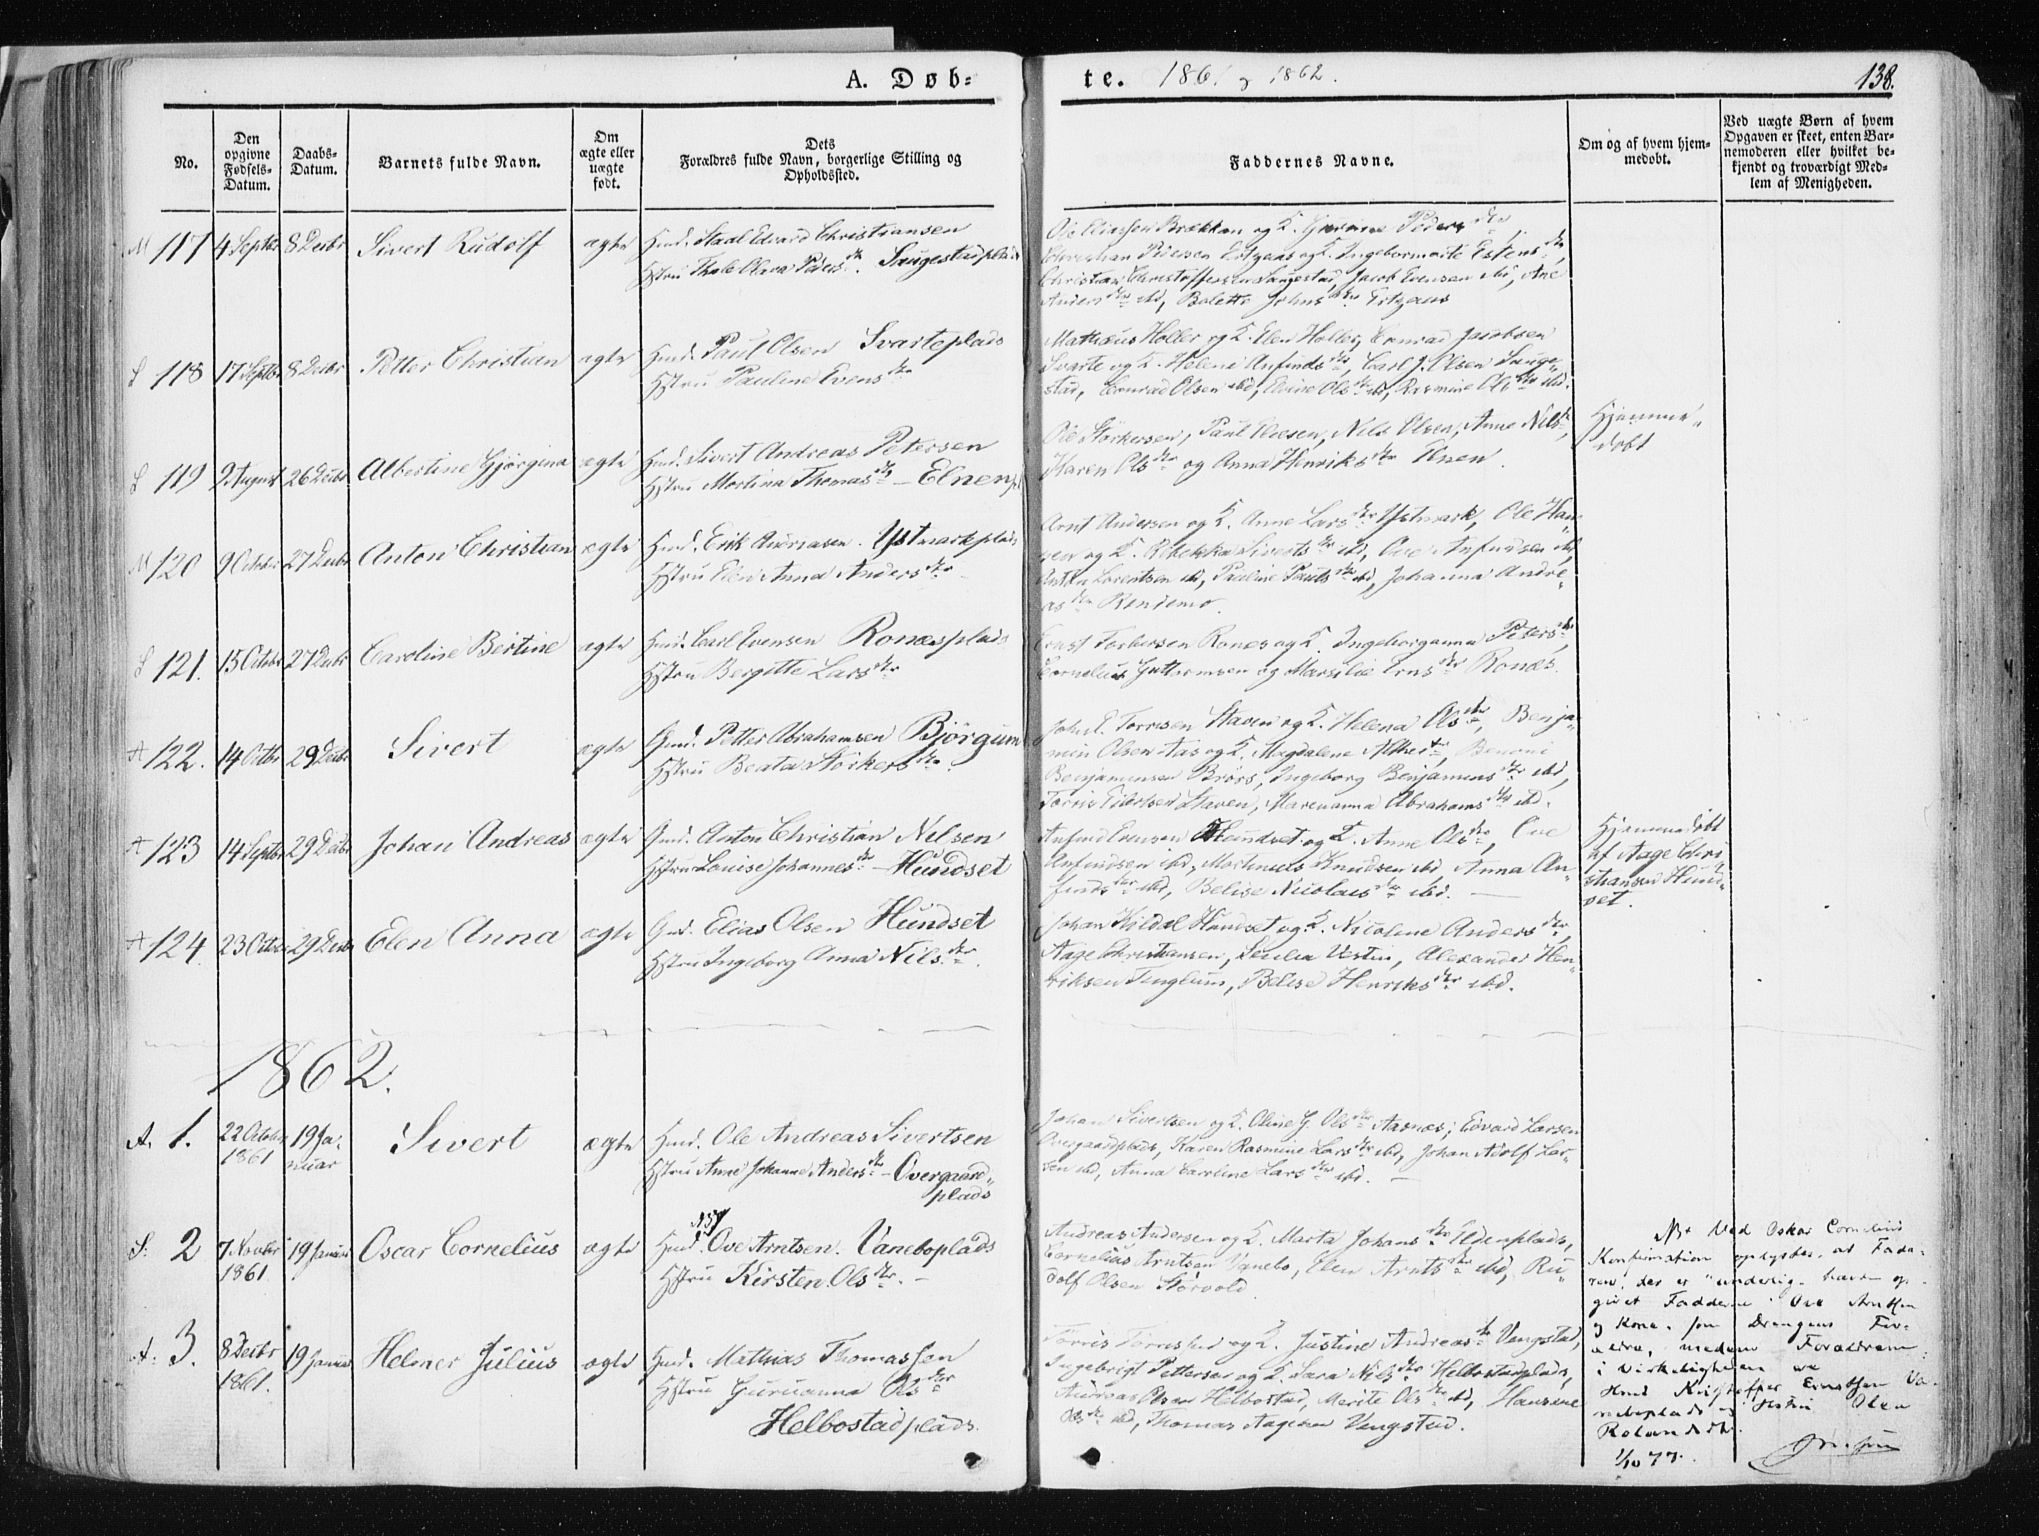 A. Døb=
te. 1861 og 1862.
138.
No.
Den opgivne Fødsels-Datum.
Daabs-Datum.
Barnets fulde Navn.
Om ægte eller uægte født.
Dets
Forældres fulde Navn, borgerlige Stilling og
Opholdssted.
Faddernes Navne.
Om og af hvem hjem-
medøbt.
Ved uægte Børn af hvem
Opgaven er skeet, enten Bar-
nemoderen eller hvilket be-
kjendt og troværdigt Med-
lem af Menigheden.
M 117 4 Septbr 8 Decbr Sivert Rudolf ægte Hmd. Staal Edvard Christiansen
Hstru Thale Olava Peders dtr. Saugestadplads
Ole Eliassen Brekkan og K. Peders dtr
Christian Pedersen og K. Ingebormarte Estens dtr,
Christian Christoffersen Saugestad, Jacob Evensen ibd, Ane
Anders dtr ibd, Bolette Johns dtr
S 118 17 Septbr 8 Decbr Petter Christian ægte Hmd. Paul Olsen Svarteplads
Hstru Pauline Evens dtr
Mathæus Holler og K. Elen Holler, Conrad Jacobsen
Svarte og K. Helena Anfinds dtr, Carl J. Olsen Sauge-
stad, Conrad Olsen ibd, Elvine Ols dtr ibd, Rasmine Ols dtr ibd.
S 119 2 August 26 Decbr Albertine Gjørgina ægte Hmd. Sivert Andreas Petersen
Hstru Martina Thomas dtr – Elnenpl
Ole Størkersen, Paul Olesen, Nils Olsen, Anne Nils dtr,
Karen Ols dtr og Anna Henriks dtr Elnen.
Hjemme-
døbt
M 120 9 Octobr 27 Decbr Anton Christian ægte Hmd. Erik Andreasen. Ystmarkplads
Hstru Elen Anna Anders dtr
Arnt Andersen og K. Anne Lars dtr Ystmark, Ole Han-
sen og K. Rebekka Siverts dtr ibd, Ove Anfindsen ibd,
Anton Lorentsen ibd, Pauline Pauls dtr ibd, Johanna Andre-
as dtr Rendemo.
S 121. 15 Octobr 27 Decbr Caroline Bertine ægte Hmd. Carl Evensen Ronæsplads
Hstru Bergitte Lars dtr
Ernst Torbersen Ronæs og K. Ingeborganna Peters dtr,
Cornelius Guttormsen og Marsilie Erns dtr Ronæs.
A 122. 14 Octbr 29 Decbr Sivert ægte Gmd. Petter Abrahamsen Bjørgum
Hstru Beata Størkers dtr.
Joh. E. Torresen Staven og K. Helena Ols dtr, Benja-
min Olsen Aas og K. Magdalene dtr, Benoni
Benjaminsen Brørs, Ingeborg Benjamins dtr ibd,
Torris Eilertsen Staven, Marenanna Abrahams dtr ibd.
A 123 14 Septbr 29 Decbr Johan Andreas ægte Gmd. Anton Christian Nilsen
Hstru Louise Johannes dtr – Hundset
Anfind Evensen Hundset og K. Anne Ols dtr, Ove
Anfindsen ibd, Martinus Knudsen ibd, Anna An-
finds dtr ibd, Belise Nicolais dtr ibd.
Hjemmedøbt
af Aage Chri
stiansen Hund-
set.
A 124 23 Octobr 29 Decbr Elen Anna ægte Gmd. Elias Olsen Hundset
Hstru Ingeborg Anna Nils dtr.
Johan Kildal Hundset og K. Nicoline Anders dtr,
Aage Christiansen, Cecilia Vestin, Alexander Hen-
riksen Tinglum, Belise Henriks dtr ibd.
1862.
A. 1. 22 October 1861 19 Ja-
nuar Sivert ægte Hmd. Ole Andreas Sivertsen
Hstru Anne Johanne Anders dtr – Overgaard-
plads
Johan Sivertsen og K. Oline G. Ols dtr Aasnæs; Edvard Larsen
Overgaardplads, Karen Rasmine Lars dtr ibd, Johan Adolf Lar-
sen ibd, Anna Caroline Lars dtr ibd.
S. 2 7 Novbr 1861 19 Januar Oscar Cornelius ægte Hmd. Ove Arntsen. Vaneboplads
Hstru Kirsten Ols dtr. –
Andreas Andersen og K. Marta Johans dtr Eldenplads,
Cornelius Arntsen Vanebo, Elen Arnts dtr ibd, Ru-
dolf Olsen Storvold.
NB Ved Oskar Cornelius
Konfirmation oplystes, at Fada-
ren, der er underlig, havde op-
givet Fadderne Ove Arntsen
og Kone, som Drengens For-
ældre, medens Forældrene
i Virkeligheden ere
Hmd Kristoffer Ernstsen Va-
neboplads og Hstru Olea
Rolandsdtr.
1/10 77.
A. 3. 8 Decbr 1861. 19 Januar Helmer Julius ægte Hmd. Mathias Thomassen
Hstru Guruanna Ols dtr
Helbostadplads.
Torris Torrissen og K. Justine Andreas dtr Vengstad,
Ingebrigt Pettersen og K. Sara Nils dtr Helbostadplads,
Andreas Olsen Helbostad, Merite Ols dtr ibd, Hansine
Ols dtr ibd, Thomas Aagesen Vengstad.